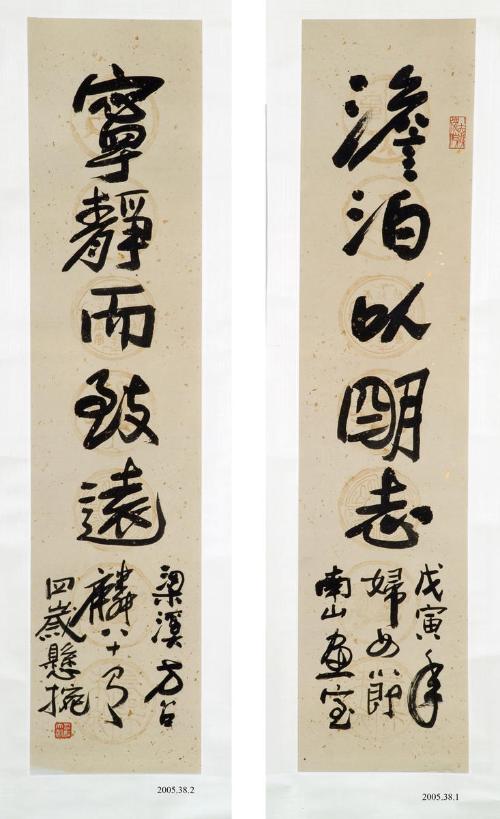 澹泊以明志
戊寅年
婦女節
南山畫室
2005.38.1
寧靜而致遠
梁溪方召
麟八十有
四歲懸捥
2005.38.2